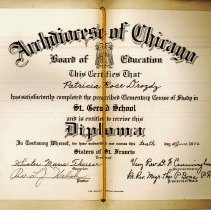 Archdiocese of Chicago
Board of Education
This Certifies That
Patricia Rose Drozdz
has satisfactorily completed the prescribed Elementary Course of Study in
St. Gerald School
and is entitled to receive this
Diploma
In Testimony Whereof, we have authorized this
day of June
Sisters of St. Francis
Sister Marie Therese
Very Rev. D. F. Cunningham
Rt. Rev. Msgr.